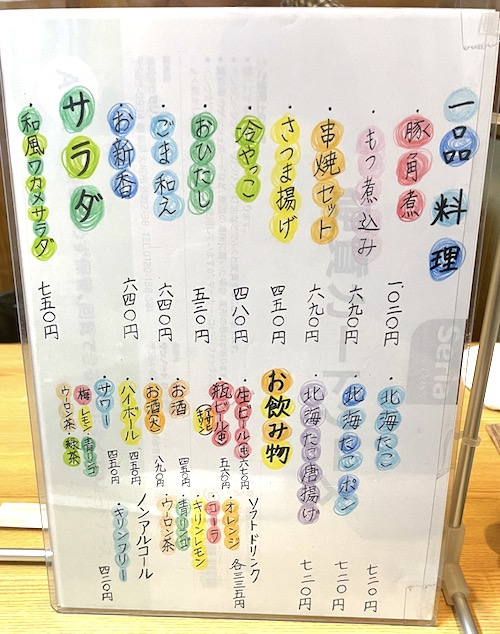 一品料理
・豚角煮 一〇二〇円
・もつ煮込み 六九〇円
・串焼セット 六九〇円
・さつま揚げ 四五〇円
・冷やっこ 四八〇円
・おひたし 五三〇円
・ごま和え 六四〇円
・お新香 六四〇円
サラダ
・和風ワカメサラダ 七五〇円
・北海たこ 七二〇円
・北海たこポン 七二〇円
・北海たこ唐揚げ 七二〇円
お飲み物
・生ビール 六七〇円
・瓶ビール 五六〇円
・お酒 四五〇円
・お酒大 八九〇円
・ハイボール 四五〇円
・サワー 四五〇円
梅 レモン 青リンゴ
ウーロン茶 緑茶
ソフトドリンク 各三三五円
・オレンジ
・コーラ
・キリンレモン
・青リンゴ
・ウーロン茶
ノンアルコール
・キリンフリー 四二〇円
Seria